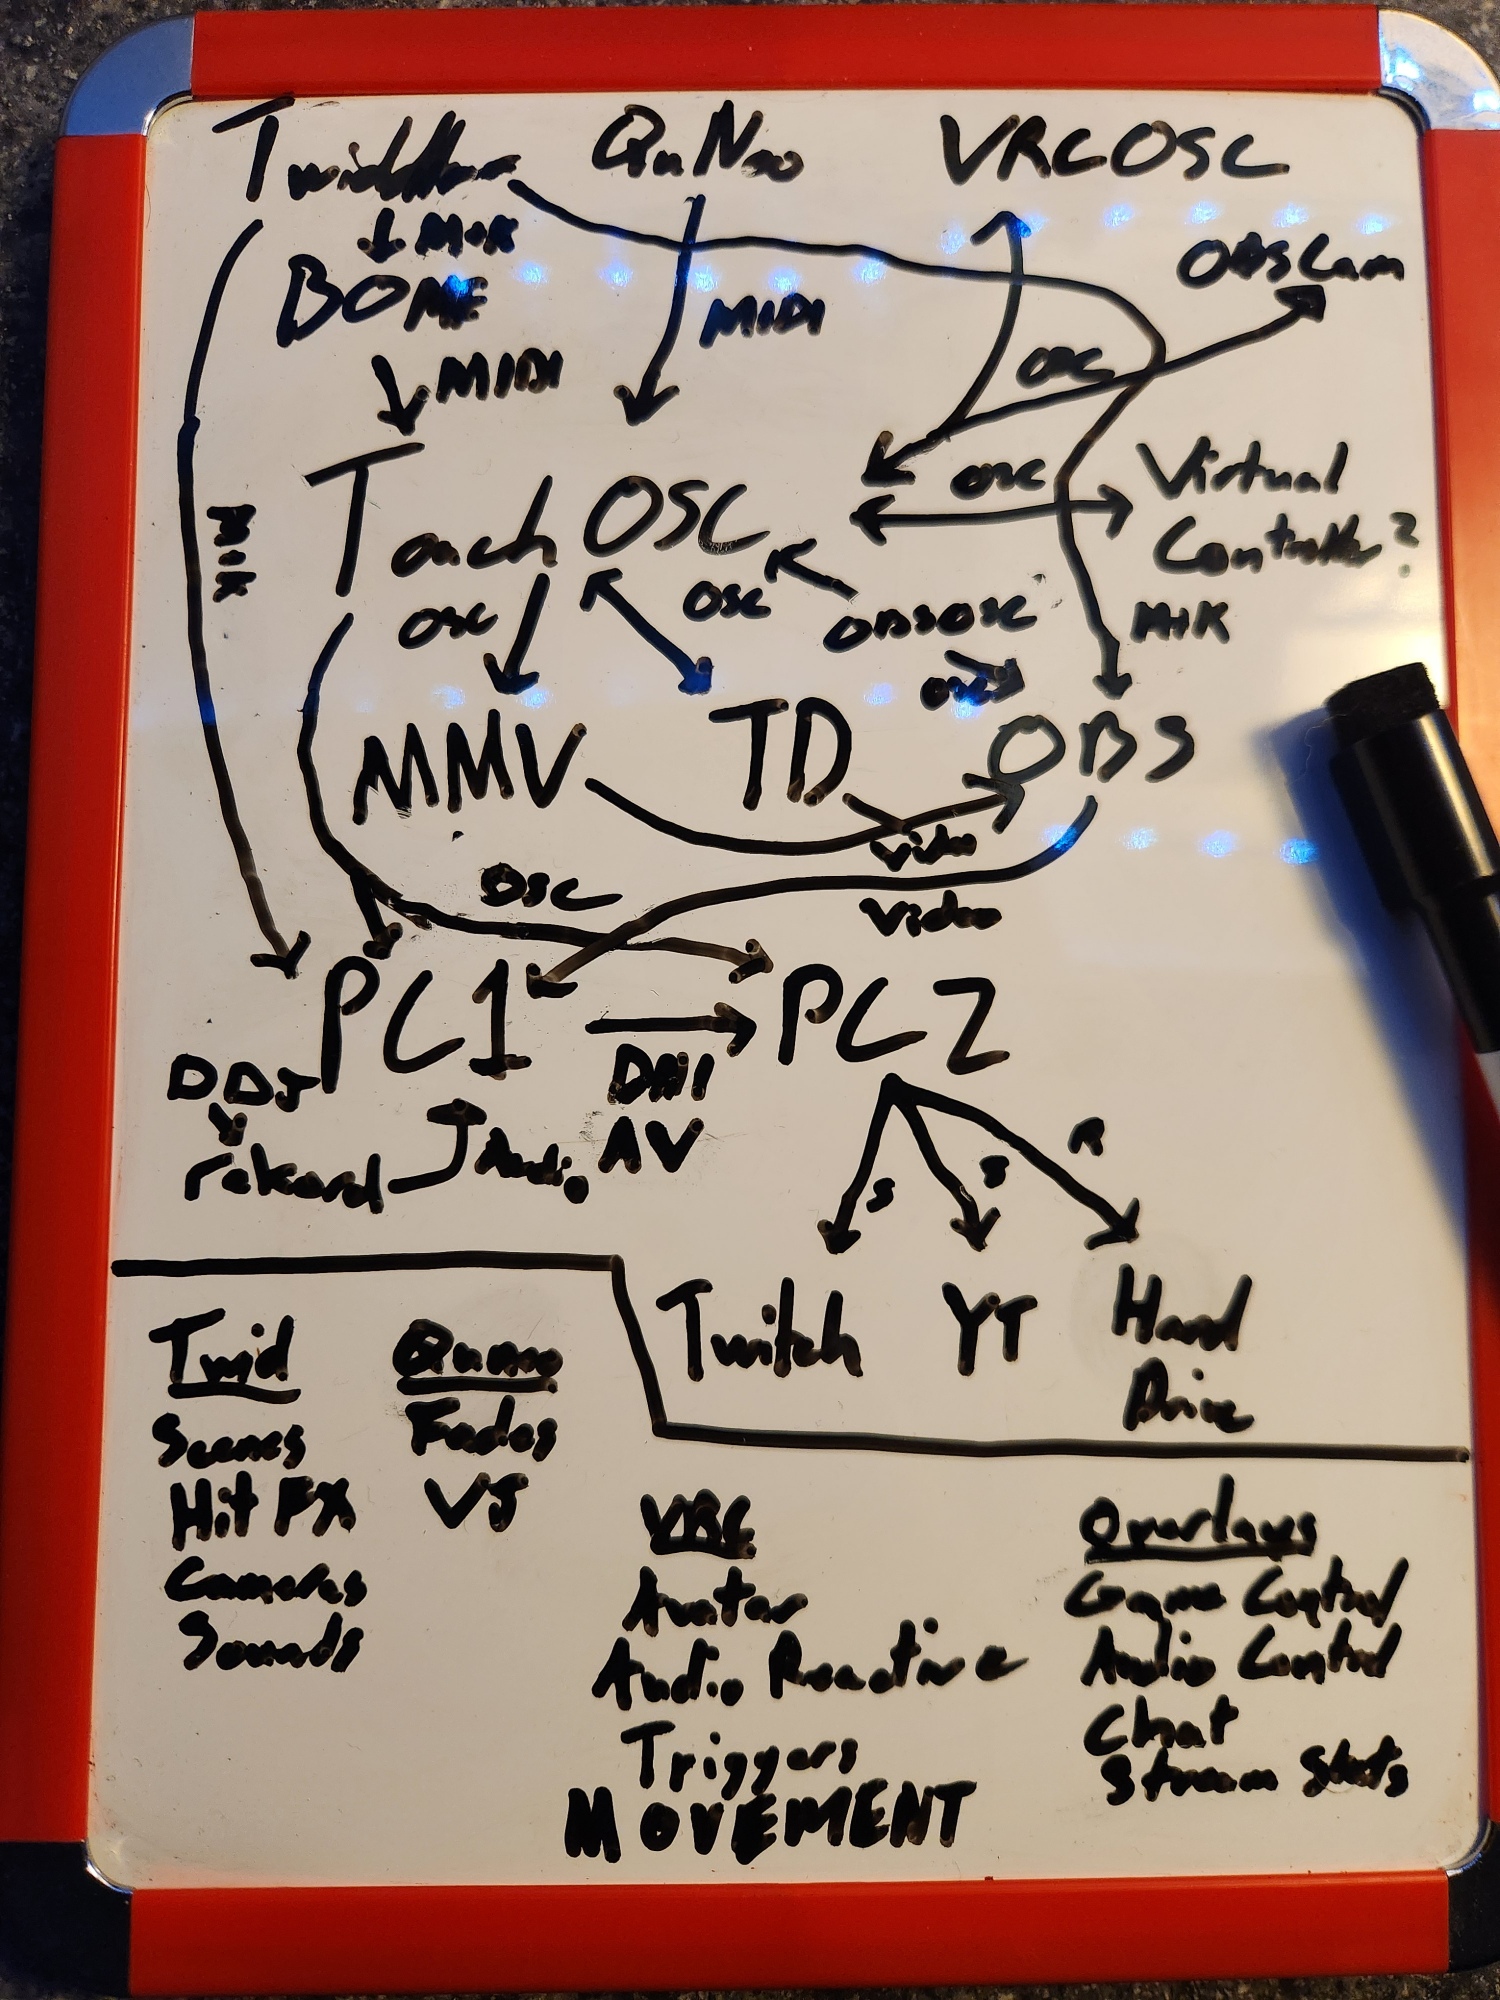 Twiddler QuNeo VRCOSC
M+K
BOME
MIDI
OBSCam
MIDI
OSC
M+K
TouchOSC
OSC
Virtual
Controller?
OSC
OSC
OBSOSC
M+K
OSC
MMV TD OBS
Video
OSC
Video
PC1 PC2
DDJ
rekord
Audio
AV
R
S
S
Twitch YT Hard
Drive
Twid
Scenes
Hit FX
Cameras
Sounds
Quneo
Fades
VJ
VRC
Avatar
Audio Reactive
Triggers
MOVEMENT
Overlays
Game Control
Audio Control
Chat
Stream